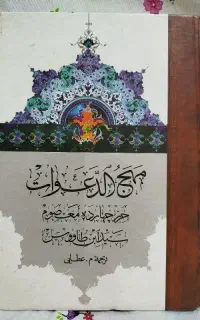 مهج الدعوات
حرز چهارده معصوم
سید ابن طاووس
ترجمه م. عطایی